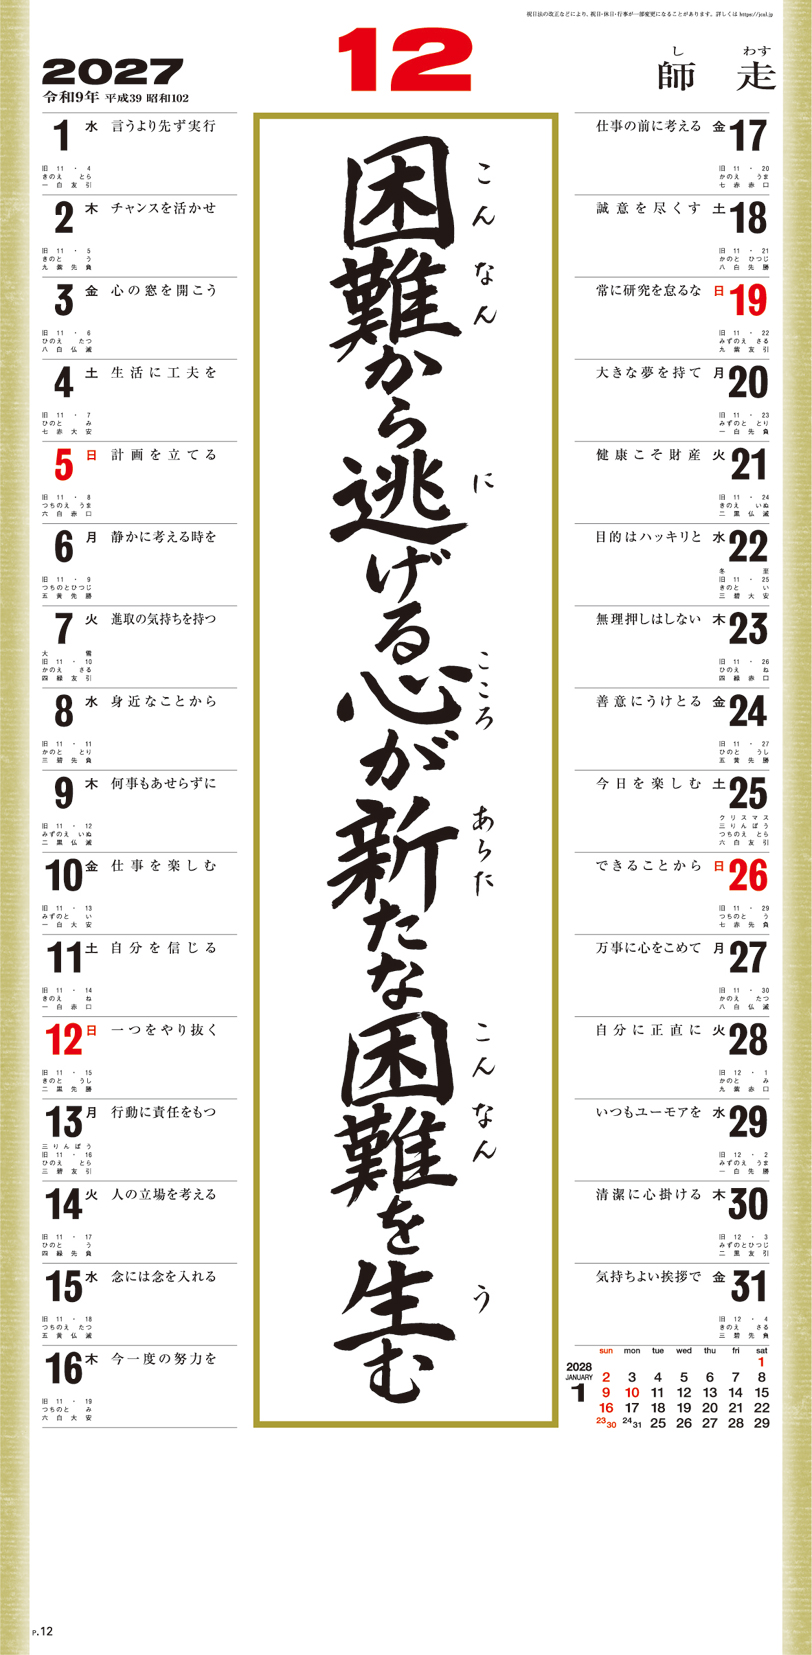 祝日法の改正などにより、祝日・休日・行事が一部変更になることがあります。詳しくは https://jcal.jp
2027
令和9年 平成39 昭和102
12
し わす
師 走
1 水 言うより先ず実行
旧 11 ・ 4
きのえ とら
一 白 友 引
2 木 チャンスを活かせ
旧 11 ・ 5
きのと う
九 紫 先 負
3 金 心の窓を開こう
旧 11 ・ 6
ひのえ たつ
八 白 仏 滅
4 土 生活に工夫を
旧 11 ・ 7
ひのと み
七 赤 大 安
5 日 計画を立てる
旧 11 ・ 8
つちのえ うま
六 白 赤 口
6 月 静かに考える時を
旧 11 ・ 9
つちのとひつじ
五 黄 先 勝
7 火 進取の気持ちを持つ
大 雪
旧 11 ・ 10
かのえ さる
四 緑 友 引
8 水 身近なことから
旧 11 ・ 11
かのと とり
三 碧 先 負
9 木 何事もあせらずに
旧 11 ・ 12
みずのえ いぬ
二 黒 仏 滅
10 金 仕事を楽しむ
旧 11 ・ 13
みずのと い
一 白 大 安
11 土 自分を信じる
旧 11 ・ 14
きのえ ね
一 白 赤 口
12 日 一つをやり抜く
旧 11 ・ 15
きのと うし
二 黒 先 勝
13 月 行動に責任をもつ
三りんぼう
旧 11 ・ 16
ひのえ とら
三 碧 友 引
14 火 人の立場を考える
旧 11 ・ 17
ひのと う
四 緑 先 負
15 水 念には念を入れる
旧 11 ・ 18
つちのえ たつ
五 黄 仏 滅
16 木 今一度の努力を
旧 11 ・ 19
つちのと み
六 白 大 安
困難から逃げる心が新たな困難を生む
こんなん に こころ あらた こんなん う
仕事の前に考える 金 17
旧 11 ・ 20
かのえ うま
七 赤 赤 口
誠意を尽くす 土 18
旧 11 ・ 21
かのと ひつじ
八 白 先 勝
常に研究を怠るな 日 19
旧 11 ・ 22
みずのえ さる
九 紫 友 引
大きな夢を持て 月 20
旧 11 ・ 23
みずのと とり
一 白 先 負
健康こそ財産 火 21
旧 11 ・ 24
きのえ いぬ
二 黒 仏 滅
目的はハッキリと 水 22
冬 至
旧 11 ・ 25
きのと い
三 碧 大 安
無理押しはしない 木 23
旧 11 ・ 26
ひのえ ね
四 緑 赤 口
善意にうけとる 金 24
旧 11 ・ 27
ひのと うし
五 黄 先 勝
今日を楽しむ 土 25
クリスマス
三りんぼう
つちのえ とら
六 白 友 引
できることから 日 26
旧 11 ・ 29
つちのと う
七 赤 先 負
万事に心をこめて 月 27
旧 11 ・ 30
かのえ たつ
八 白 仏 滅
自分に正直に 火 28
旧 12 ・ 1
かのと み
九 紫 赤 口
いつもユーモアを 水 29
旧 12 ・ 2
みずのえ うま
一 白 先 勝
清潔に心掛ける 木 30
旧 12 ・ 3
みずのとひつじ
二 黒 友 引
気持ちよい挨拶で 金 31
旧 12 ・ 4
きのえ さる
三 碧 先 負
2028
JANUARY
1
sun mon tue wed thu fri sat
1
2 3 4 5 6 7 8
9 10 11 12 13 14 15
16 17 18 19 20 21 22
23/30 24/31 25 26 27 28 29
P.12